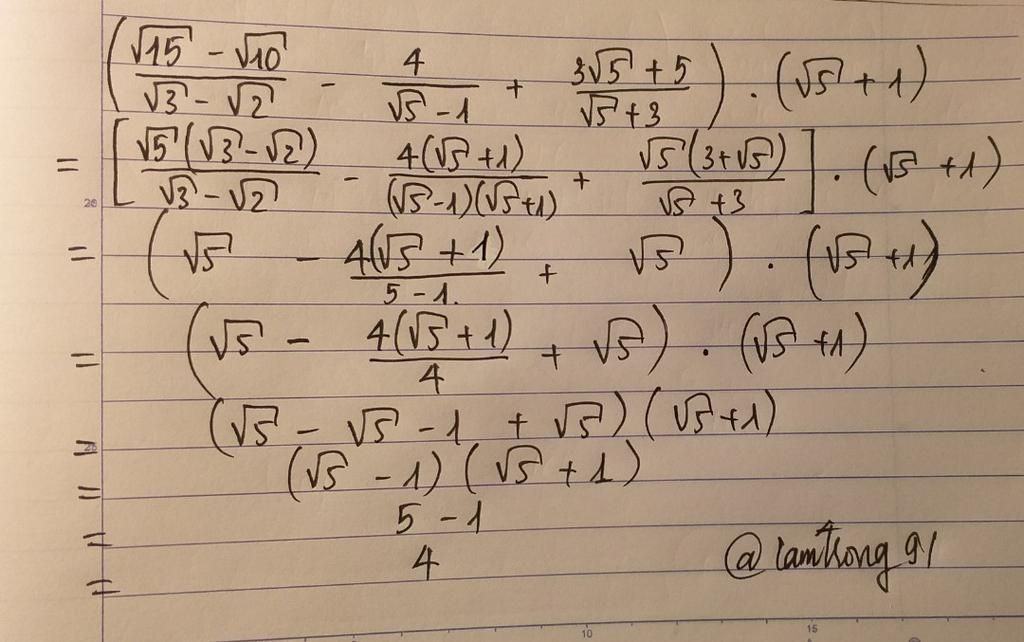 (√15 - √10 / √3 - √2 - 4 / √5 - 1 + 3√5 + 5 / √5 + 3) . (√5 + 1)
= [√5(√3 - √2) / √3 - √2 - 4(√5 + 1) / (√5 - 1)(√5 + 1) + √5(3 + √5) / √5 + 3] . (√5 + 1)
= (√5 - 4(√5 + 1) / 5 - 1 + √5) . (√5 + 1)
= (√5 - 4(√5 + 1) / 4 + √5) . (√5 + 1)
= (√5 - √5 - 1 + √5)(√5 + 1)
= (√5 - 1)(√5 + 1)
= 5 - 1
= 4
20
10
15